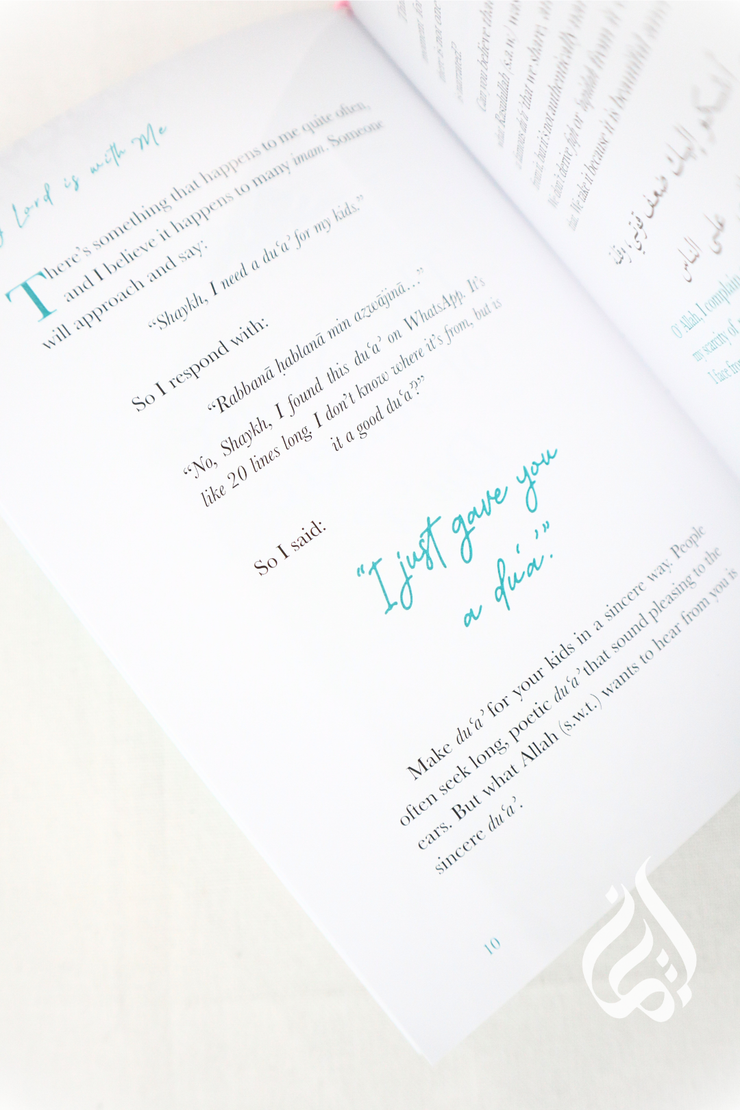 Lord is with Me
There's something that happens to me quite often,
and I believe it happens to many imam. Someone
will approach and say:
“Shaykh, I need a du‘a’ for my kids.”
So I respond with:
“Rabbanā hablanā min azwājinā…”
“No, Shaykh, I found this du‘a’ on WhatsApp. It's
like 20 lines long. I don't know where it's from, but is
it a good du‘a’?”
So I said:
“I just gave you
a du‘a’.”
Make du‘a’ for your kids in a sincere way. People
often seek long, poetic du‘a’ that sound pleasing to the
ears. But what Allah (s.w.t.) wants to hear from you is
sincere du‘a’.
10
Can you believe that
that we share, and
not authentically
We take it because it is beautiful and
O' Allah, I complain
my scarcity of
I face from